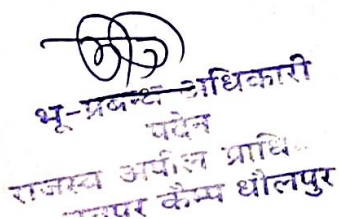 भू-प्रबन्ध अधिकारी
पदेन
राजस्व अपील प्राधि..
कैम्प धौलपुर